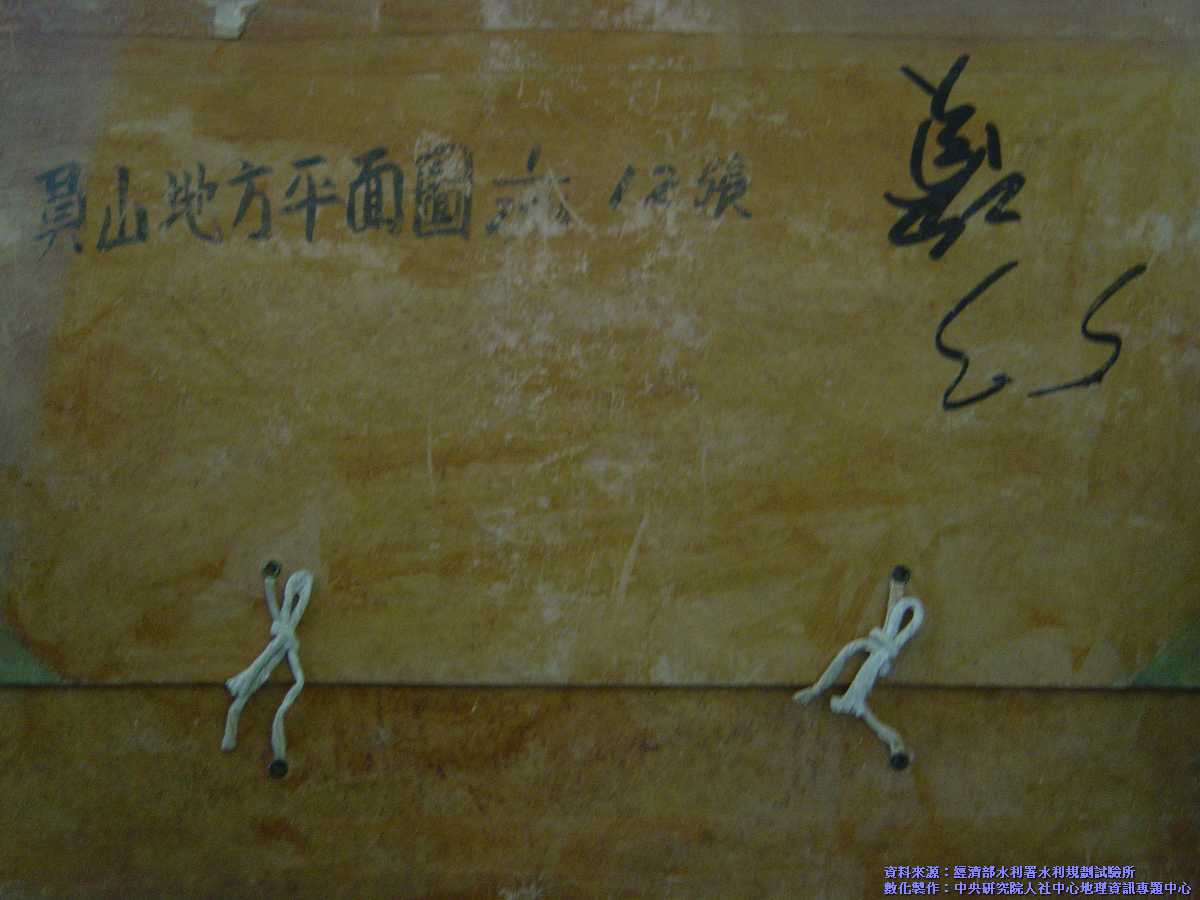 員山地方平面圖 共 12張
資料來源：經濟部水利署水利規劃試驗所
數化製作：中央研究院人社中心地理資訊專題中心